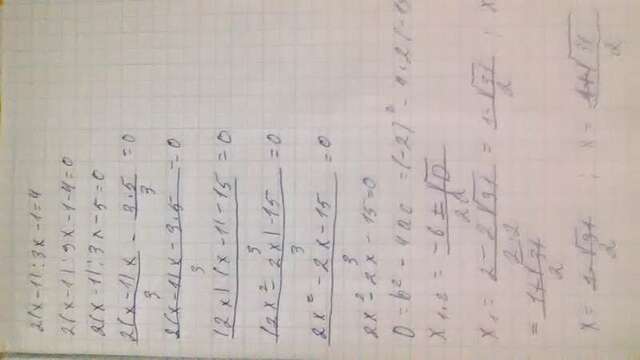 2(x-1):3x-1=4
2(x-1):3x-1-4=0
2(x-1):3x-5=0
2(x-1)x/3 - 3·5/3 =0
2(x-1)x-3·5/3 =0
(2x)(x-1)-15/3 =0
(2x²-2x)-15/3 =0
2x²-2x-15/3 =0
2x²-2x-15=0
D=b²-4ac=(-2)²-4·2(-15
x1,2 = -b±√D/2
x1= 2-2√31/2·2 = 1-√31/2 ; x
= 1+√31/2
x= 1-√31/2 ; x= 1+√31/2